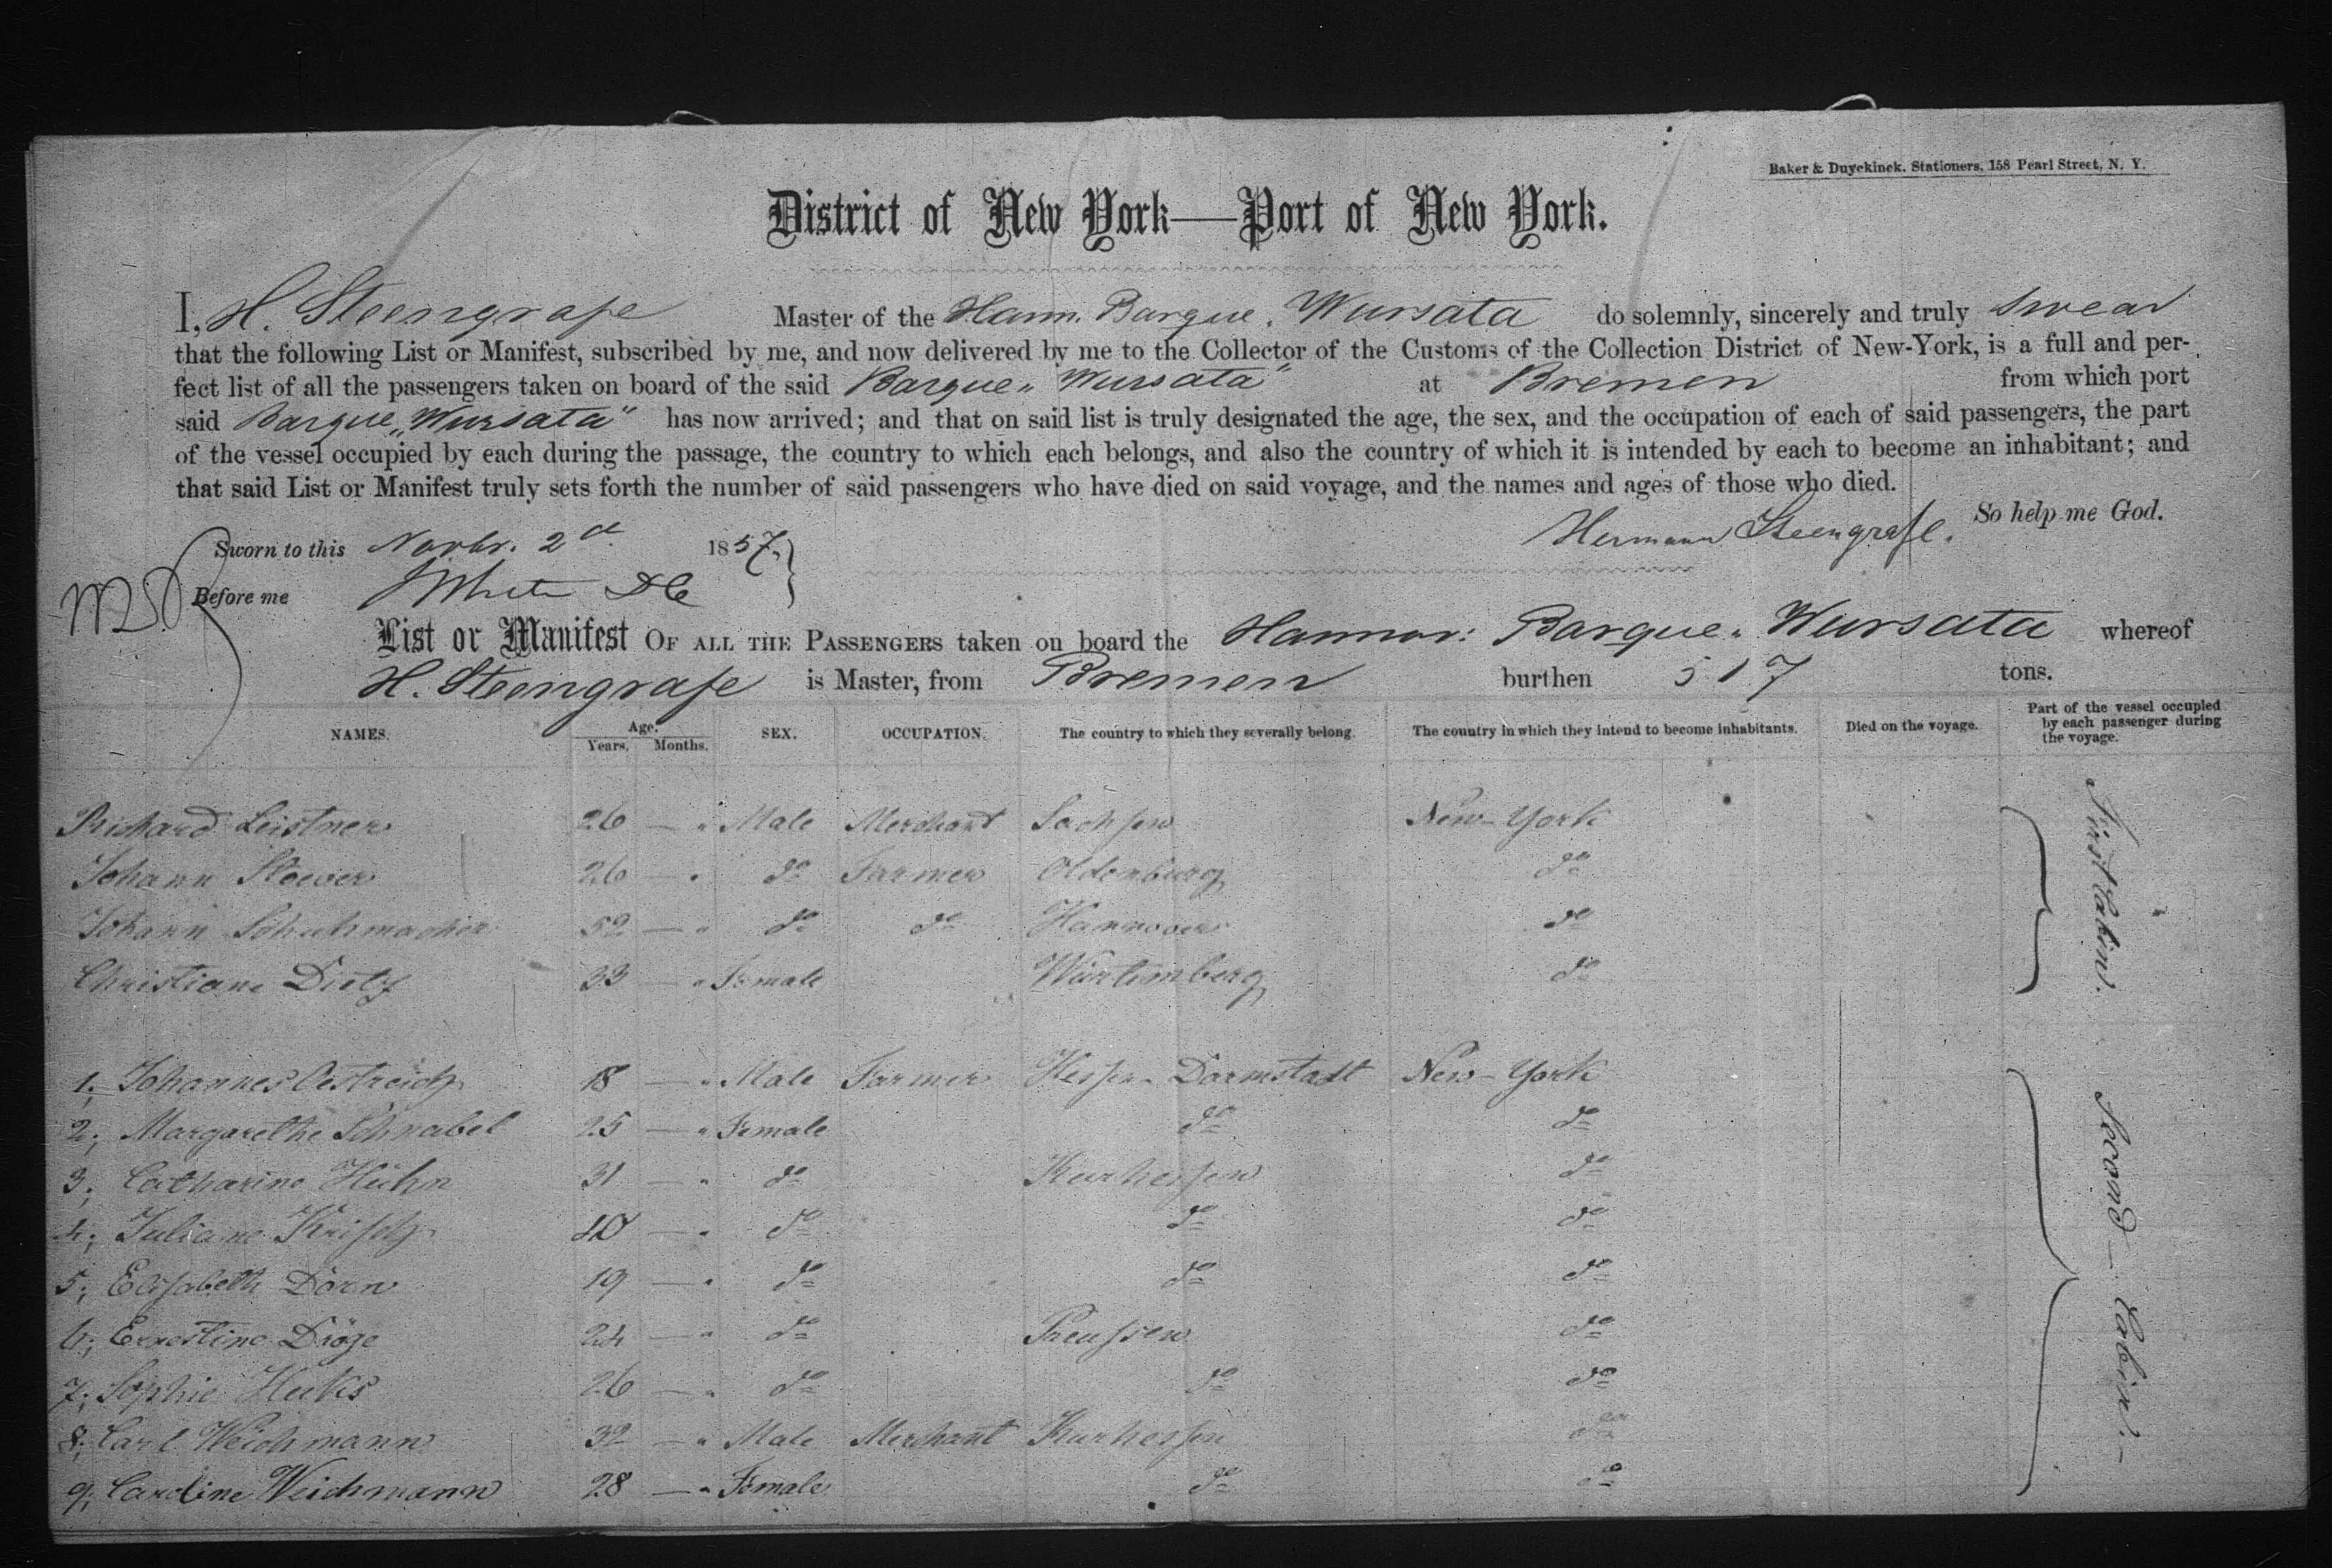 Baker & Duyckinck, Stationers, 158 Pearl Street, N. Y.
District of New York—Port of New York.
I, H. Steengrafe Master of the Hann. Barque „Wursata do solemnly, sincerely and truly swear
that the following List or Manifest, subscribed by me, and now delivered by me to the Collector of the Customs of the Collection District of New-York, is a full and per-
fect list of all the passengers taken on board of the said Barque „Wursata" at Bremen from which port
said Barque „Wursata" has now arrived; and that on said list is truly designated the age, the sex, and the occupation of each of said passengers, the part
of the vessel occupied by each during the passage, the country to which each belongs, and also the country of which it is intended by each to become an inhabitant; and
that said List or Manifest truly sets forth the number of said passengers who have died on said voyage, and the names and ages of those who died.
Hermann Steengrafe. So help me God.
Sworn to this Novbr. 2d 1857.
Before me White
List or Manifest OF ALL THE PASSENGERS taken on board the Hannov: Barque „Wursata whereof
H. Steengrafe is Master, from Bremen burthen 517 tons.
NAMES. Age. Years. Months. SEX. OCCUPATION. The country to which they severally belong. The country in which they intend to become inhabitants. Died on the voyage. Part of the vessel occupied by each passenger during the voyage.
Richard Leistner 26 — " Male Merchant Sachsen New-York
Johann Stoever 26 — " do Farmer Oldenburg do
Johann Schuhmacher 52 — " do do Hannover do
Christiane Dietz 33 — " Female Würtemberg do
First Cabin.
1; Johannes Oestreich 18 — " Male Farmer Hessen-Darmstadt New-York
2; Margarethe Schnabel 25 — " Female do do
3; Catharine Hühn 31 — " do Kurhessen do
4; Juliane 40 — " do do do
5; Elisabeth Dörn 19 — " do do do
6; Ernestine Dröge 24 — " do Preussen do
7; Sophie 26 — " do do do
8; Carl Weichmann 32 — " Male Merchant Kurhessen do
9; Caroline Weichmann 28 — " Female do do
Second-Cabin.-